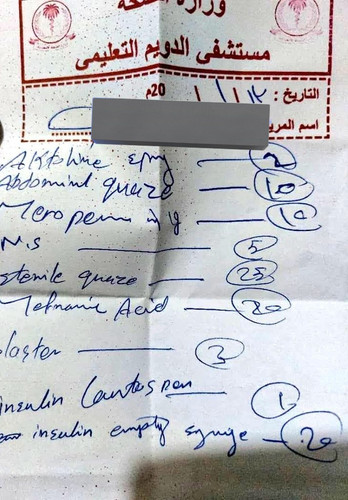 وزارة الصحة
مستشفى الدويم التعليمي
التاريخ : 12 / 1 / 20م
اسم المري
Abdominal quaze — 10
Meropenem 1g — 10
N.S — 5
sterile quaze — 25
Mefnamic Acid — 20
laster — 2
insulin Lantus pen — 1
insulin empty syringe — 20